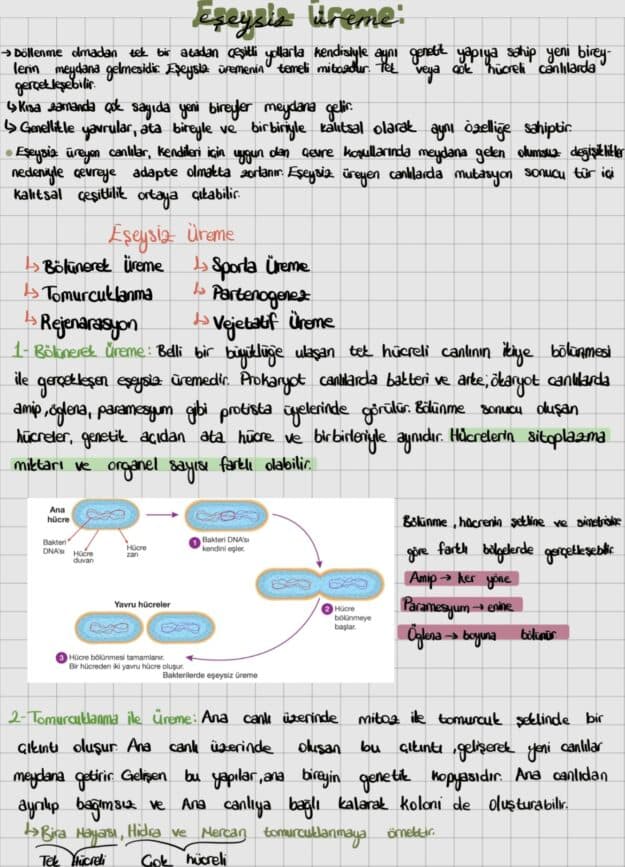 Eşeysiz üreme:
→ Döllenme olmadan tek bir atadan çeşitli yollarla kendisiyle aynı genetik yapıya sahip yeni birey-
lerin meydana gelmesidir. Eşeysiz üremenin temeli mitozdur. Tek veya çok hücreli canlılarda
gerçekleşebilir.
↳ Kısa zamanda çok sayıda yeni bireyler meydana gelir.
↳ Genellikle yavrular, ata bireyle ve birbiriyle kalıtsal olarak aynı özelliğe sahiptir.
• Eşeysiz üreyen canlılar, kendileri için uygun olan çevre koşullarında meydana gelen olumsuz değişiklikler
nedeniyle çevreye adapte olmakta zorlanır. Eşeysiz üreyen canlılarda mutasyon sonucu tür içi
kalıtsal çeşitlilik ortaya çıkabilir.
Eşeysiz Üreme
↳ Bölünerek Üreme ↳ Sporla Üreme
↳ Tomurcuklanma ↳ Partenogenez
↳ Rejenarasyon ↳ Vejetatif Üreme
1- Bölünerek Üreme: Belli bir büyüklüğe ulaşan tek hücreli canlının ikiye bölünmesi
ile gerçekleşen eşeysiz üremedir. Prokaryot canlılarda bakteri ve arke; ökaryot canlılarda
amip, öglena, paramesyum gibi protista üyelerinde görülür. Bölünme sonucu oluşan
hücreler, genetik açıdan ata hücre ve birbirleriyle aynıdır. Hücrelerin sitoplazma
miktarı ve organel sayısı farklı olabilir.
Ana
hücre
Bakteri
DNA'sı
Hücre
duvarı
Hücre
zarı
1 Bakteri DNA'sı
kendini eşler.
2 Hücre
bölünmeye
başlar.
Yavru hücreler
3 Hücre bölünmesi tamamlanır.
Bir hücreden iki yavru hücre oluşur.
Bakterilerde eşeysiz üreme
Bölünme, hücrenin şekline ve simetrisine
göre farklı bölgelerde gerçekleşebilir.
Amip → her yöne
Paramesyum → enine
Öglena → boyuna bölünür
2- Tomurcuklanma ile Üreme: Ana canlı üzerinde mitoz ile tomurcuk şeklinde bir
çıkıntı oluşur. Ana canlı üzerinde oluşan bu çıkıntı, gelişerek yeni canlılar
meydana getirir. Gelişen bu yapılar, ana bireyin genetik kopyasıdır. Ana canlıdan
ayrılıp bağımsız ve Ana canlıya bağlı kalarak koloni de oluşturabilir.
↳ Bira Mayası, Hidra ve Mercan tomurcuklanmaya örnektir.
Tek Hücreli Çok hücreli